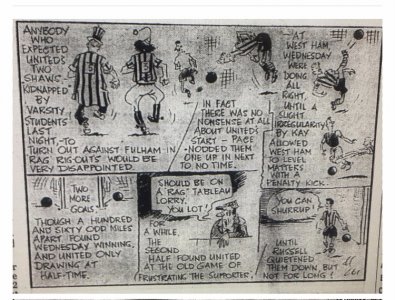 ANYBODY
WHO
EXPECTED
UNITED'S
TWO
SHAWS -
KIDNAPPED
BY
VARSITY
STUDENTS
LAST
NIGHT, - TO
TURN OUT AGAINST FULHAM IN
RAG RIG-OUTS WOULD BE
VERY DISAPPOINTED.
IN FACT
THERE WAS NO
NONSENSE AT ALL
ABOUT UNITED'S
START - PACE
NODDED THEM
ONE UP IN NEXT
TO NO TIME.
- AT
WEST HAM,
WEDNESDAY
WERE
DOING
ALL
RIGHT,
UNTIL A
SLIGHT
IRREGULARITY
BY KAY
ALLOWED
WEST HAM
TO LEVEL
MATTERS
WITH A
PENALTY KICK.
TWO
MORE
GOALS
THOUGH A HUNDRED
AND SIXTY ODD MILES
APART FOUND
WEDNESDAY WINNING,
AND UNITED ONLY
DRAWING AT
HALF-TIME.
SHOULD BE ON
A "RAG" TABLEAU
LORRY,
YOU LOT!
FOR
A WHILE,
THE
SECOND
HALF FOUND UNITED
AT THE OLD GAME OF
FRUSTRATING THE SUPPORTER,
YOU CAN
SHURRUP
UNTIL
RUSSELL
QUIETENED
THEM DOWN BUT
NOT FOR LONG!